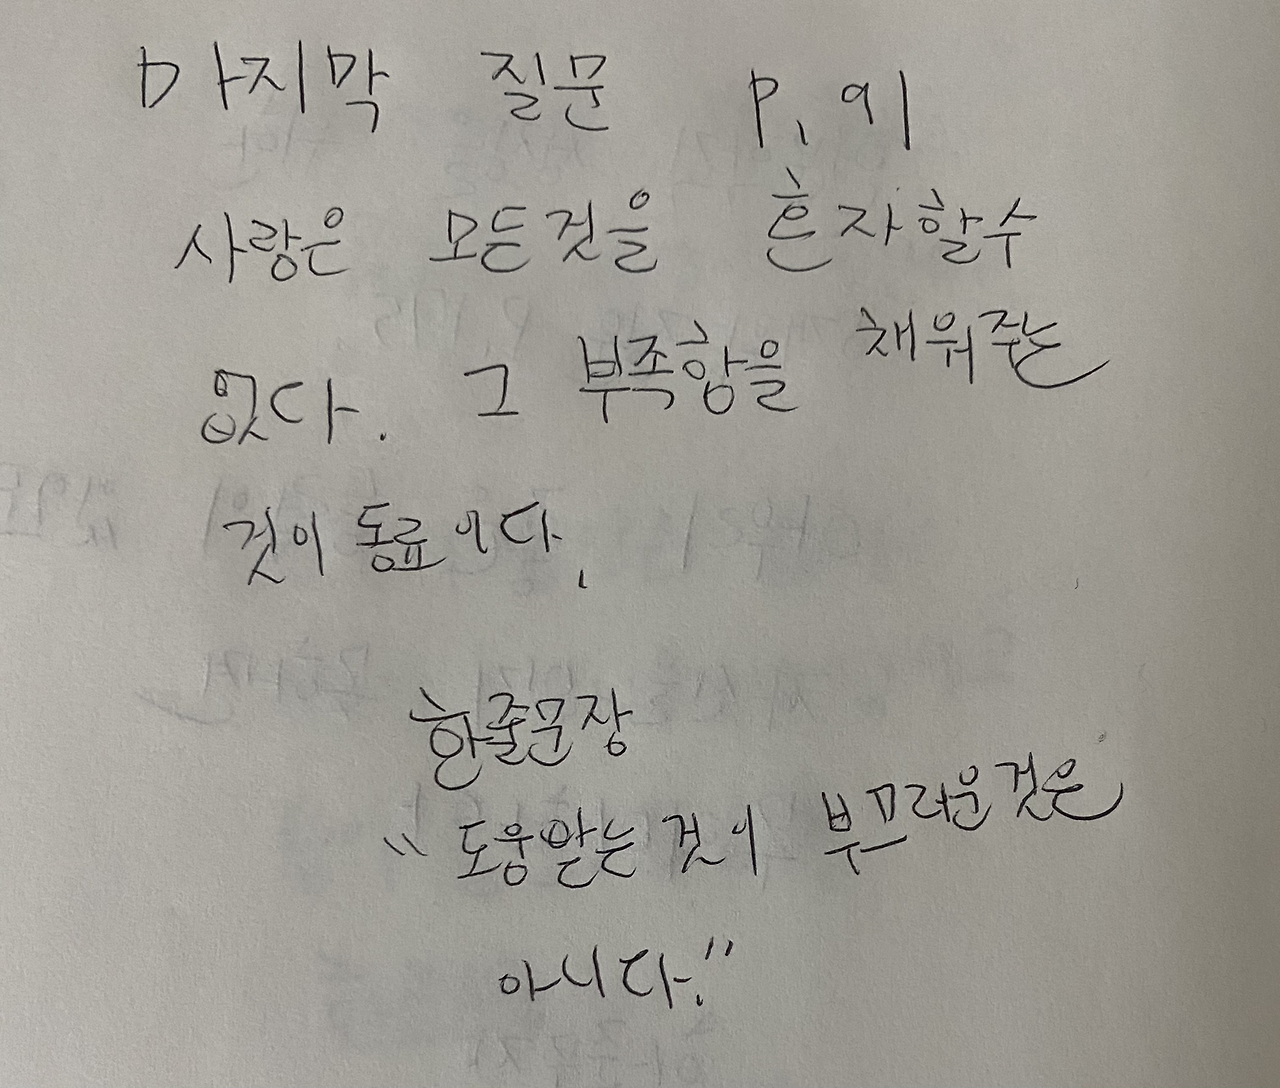 마지막 질문 P. 91
사랑은 모든것을 혼자할수
없다. 그 부족함을 채워주는
것이 동료이다.
한줄문장
"도움받는 것이 부끄러운것은
아니다."